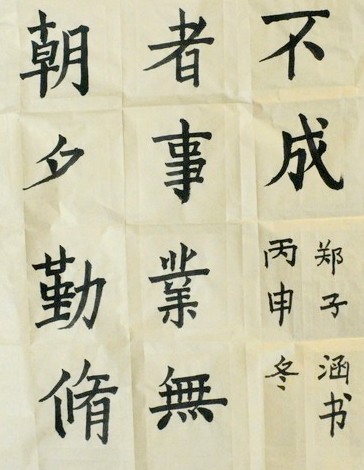 朝夕勤脩
者事業無
不成
丙申冬
郑子涵书